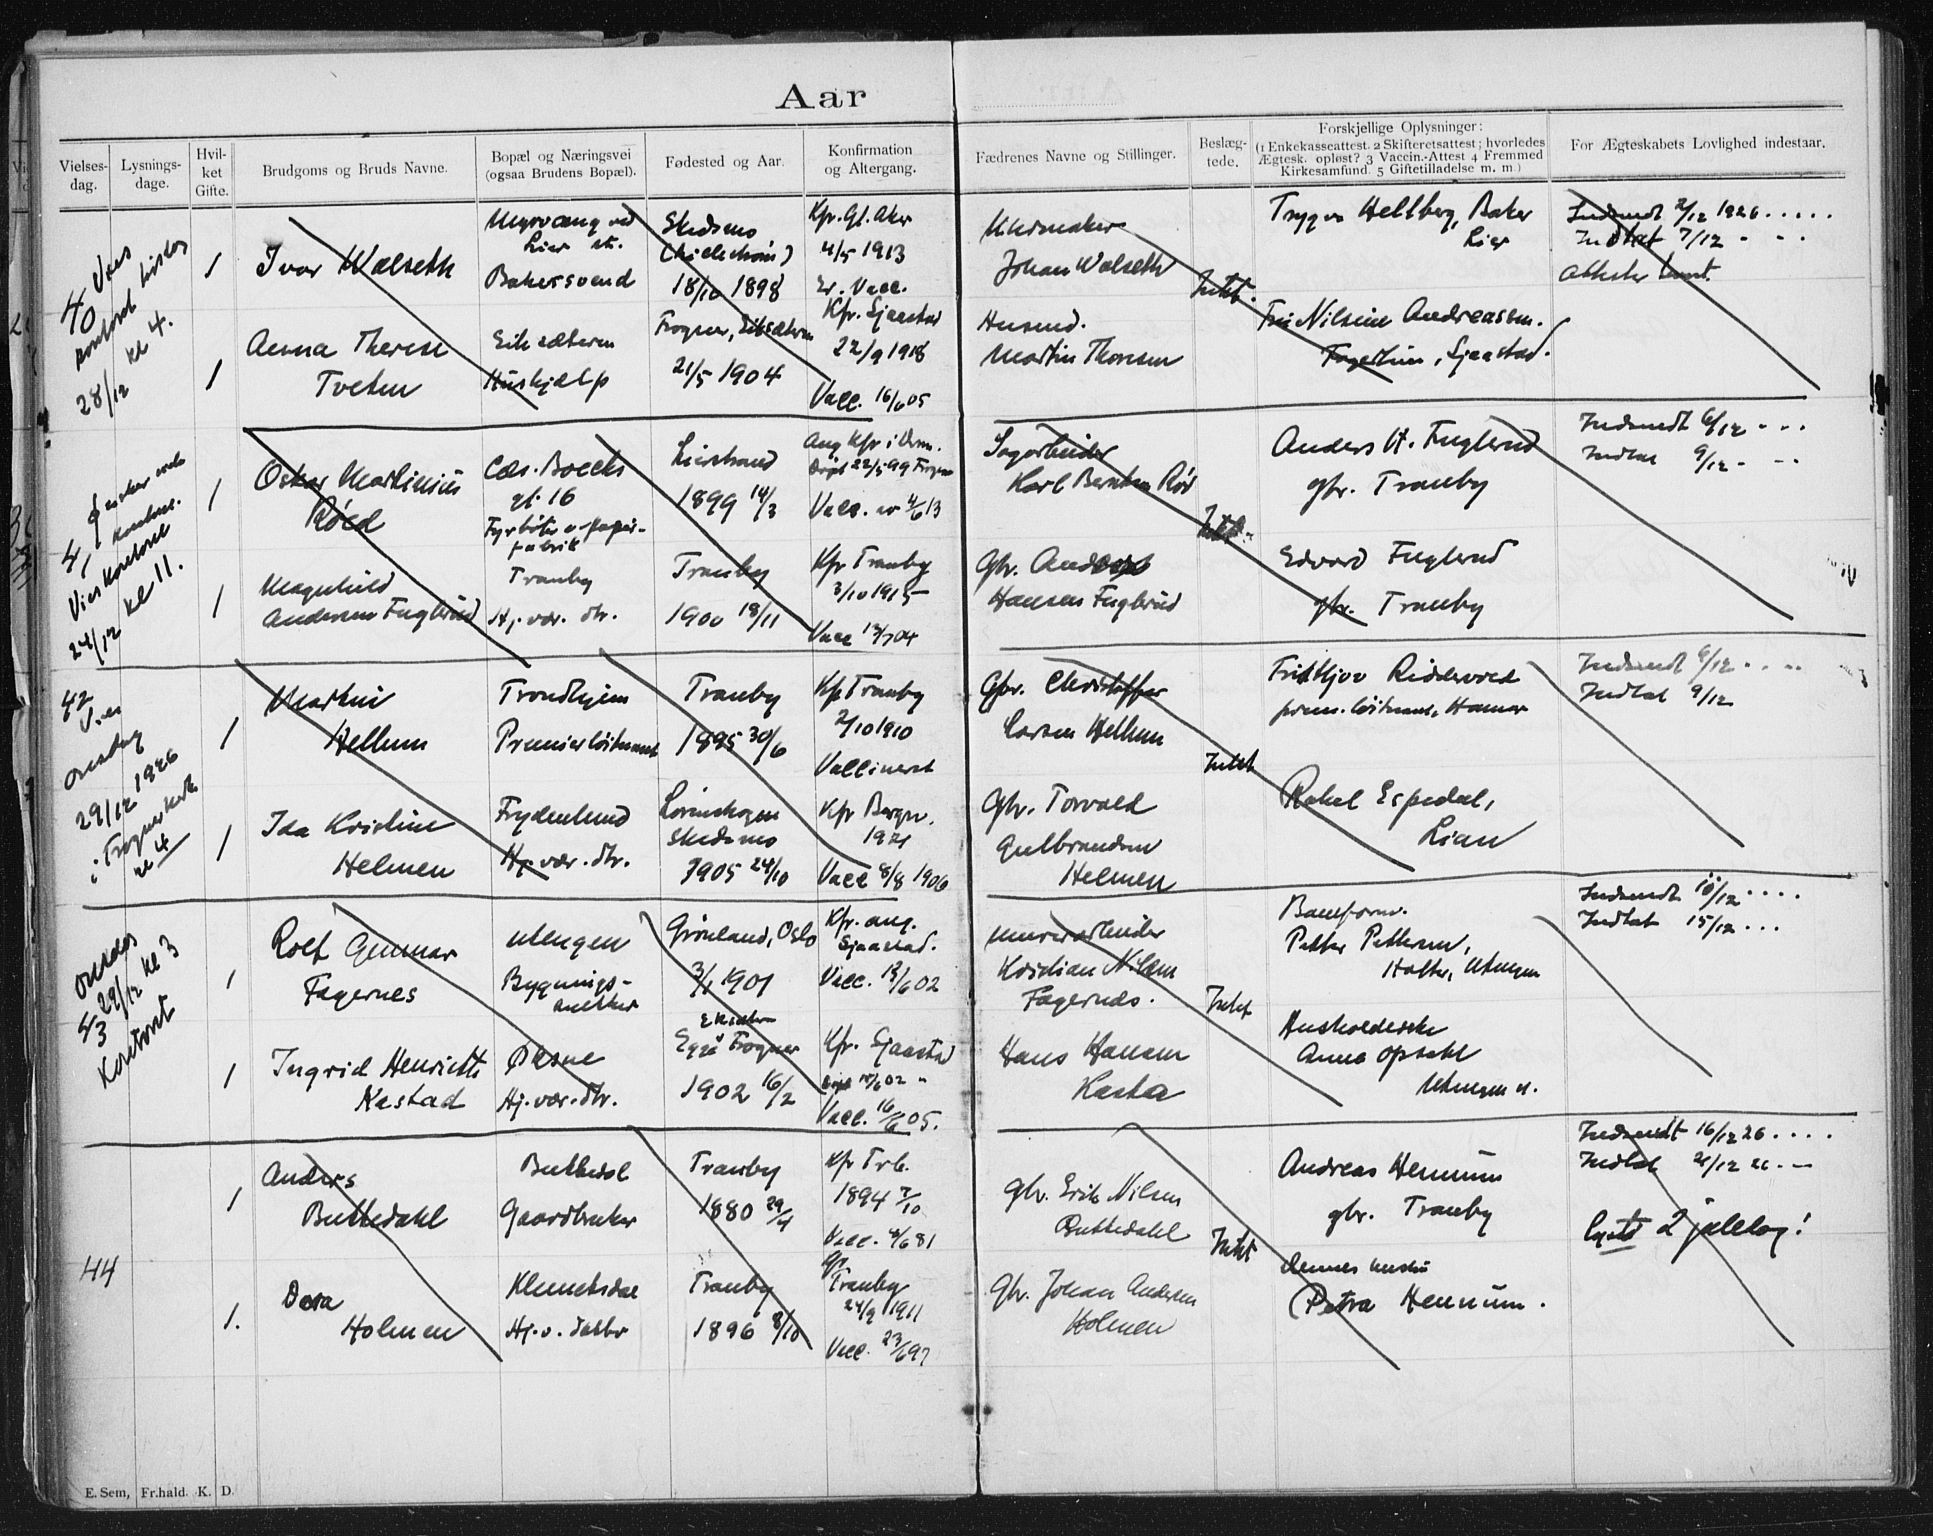 Aar
Vielses-
dag.
Lysnings-
dage.
Hvil-
ket
Gifte.
Brudgoms og Bruds Navne.
Bopæl og Næringsvei
(ogsaa Brudens Bopæl).
Fødested og Aar.
Konfirmation
og Altergang.
Fædrenes Navne og Stillinger.
Beslæg-
tede.
Forskjellige Oplysninger:
(1 Enkekasseattest. 2 Skifteretsattest; hvorledes
Ægtesk. opløst? 3 Vaccin.-Attest 4 Fremmed
Kirkesamfund. 5 Giftetilladelse m. m.)
For Ægteskabets Lovlighed indestaar.
40
Vies
kontoret
kl 4.
28/12
1
Ivar Walseth
Lier st.
Bakersvend
Skedsmo
18/10 1898
Kfr. Gl. Aker
4/5 1913
Er. Vacc.
Urmaker
Johan Walseth
Intet.
Trygve Hellberg, Baker
Lier
Indsendt 2/12 1926 . . . . .
Indtat 7/12 - - -
1
Anna Therese
Tveten
Eiksæteren
Huskjælp
Frogner, Eiksæteren
21/5 1904
Kfr. Sjaastad
22/9 1918
Vacc. 16/6 05
Husmd.
Martin Thoresen
Fru Nilsine Andreassen.
Fagertun, Sjaastad.
41
Vies kontoret
24/12 kl 11.
1
Oskar Martinius
Røed
Cæs. Boecks
gt. 16
Fyrbøter v. papir-
fabrik
Lierstrand
1899 14/3
Vacc. 4/6 13
Sagarbeider
Karl Berntsen Rød
Intet.
Anders H. Fuglerud
gbr. Tranby
Indsendt 6/12 - - -
Indtat 9/12 - - -
1
Magnhild
Andersen Fuglerud
Tranby
Hj. vær. dtr.
Tranby
1900 18/11
Kfr Tranby
3/10 1915
Vacc 13/7 04
Gbr. Anders
Hansen Fuglerud
Edvard Fuglerud
gbr. Tranby
42
Vies
onsdag
29/12 1926
i Frogner kirke
kl 4
1
Martin
Hellum
Trondhjem
Premierløitnant
Tranby
1895 30/6
Kfr Tranby
2/10 1910
Vaccineret
Gbr. Christoffer
Larsen Hellum
Intet
Frithjov Riddervold
prem.løitnant, Hamar
Indsendt 6/12 - - - -
Indtat 9/12
1
Ida Kristine
Helmen
Frydenlund
Hj. vær. dtr.
Lørenskogen
Skedsmo
1905 24/10
Kfr Bergen.
1921
Vacc 8/8 1906
Gbr. Torvald
Gulbrandsen
Helmen
Rakel Espedal,
Lian
43
onsdag
29/12 kl 3
Kontoret
1
Rolf Gunnar
Fagernes
Bygnings-
snekker
Grønland, Oslo
3/1 1901
Kfr. ang.
Sjaastad.
Vacc. 12/6 02
Murerarbeider
Kristian Nilsen
Fagernæs.
Intet
Baneform.
Petter Pettersen,
Indsendt 10/12 . . . .
Indtat 15/12 . . .
1
Ingrid Henriette
Kastad
Hj. vær. dtr.
Egge Frogner
1902 16/2
Kfr. Sjaastad
Vacc. 16/6 05.
Hans Hansen
Kastad
Husholderske
Anna Opsahl
44
1
Anders
Buttedahl
Buttedal
Gaardbruker
Tranby
1880 29/4
Kfr Trb.
1894 7/10
Vacc. 4/6 81
gbr. Erik Nilsen
Buttedahl
Intet
Andreas Hennum
gbr. Tranby
Indsendt 16/12 26 . . . .
Indtat 21/12 26 - -
lyst 2 juledag!
1.
Dora
Holmen
Klemetsdal
Hj. v. datter
Tranby
1896 8/10
Kfr
Tranby
24/9 1911
Vacc. 23/6 97
Gbr. Johan Andersen
Holmen
dennes hustru
Petra Hennum.
E. Sem, Fr.hald. K. D.